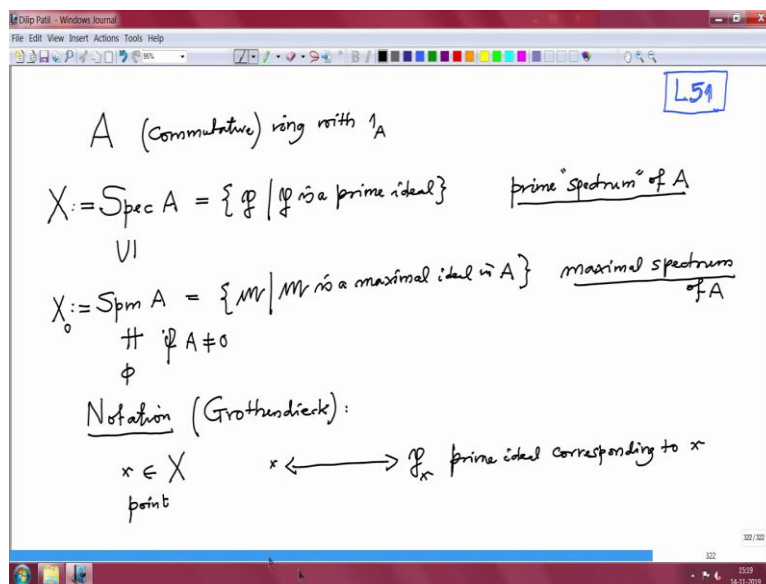 Dilip Patil - Windows Journal
File Edit View Insert Actions Tools Help
L51
A (Commutative) ring with 1_A
X := Spec A = {𝔭 | 𝔭 is a prime ideal} prime "spectrum" of A
∪|
X_0 := Spm A = {𝔪 | 𝔪 is a maximal ideal in A} maximal spectrum of A
≠ if A ≠ 0
ϕ
Notation (Grothendieck):
x ∈ X x ⟷ 𝔭_x prime ideal corresponding to x
point
322/322
322
15:19
14-11-2019